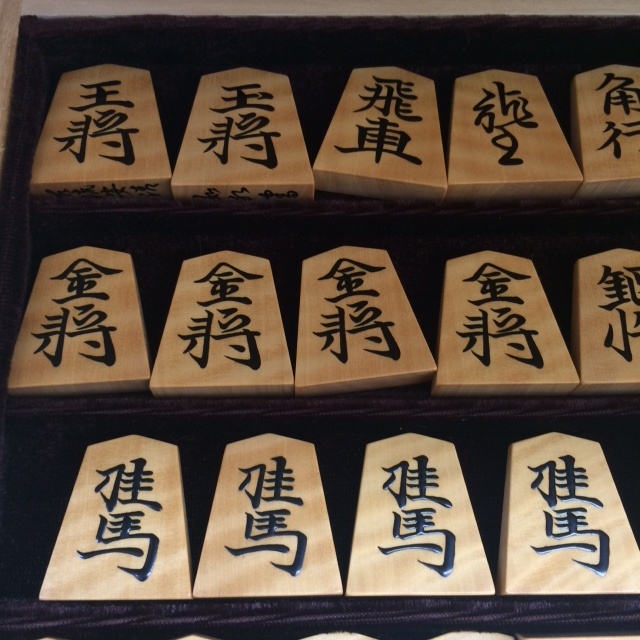 王將
玉將
飛車
龍王
角行
金將
金將
金將
金將
銀將
桂馬
桂馬
桂馬
桂馬